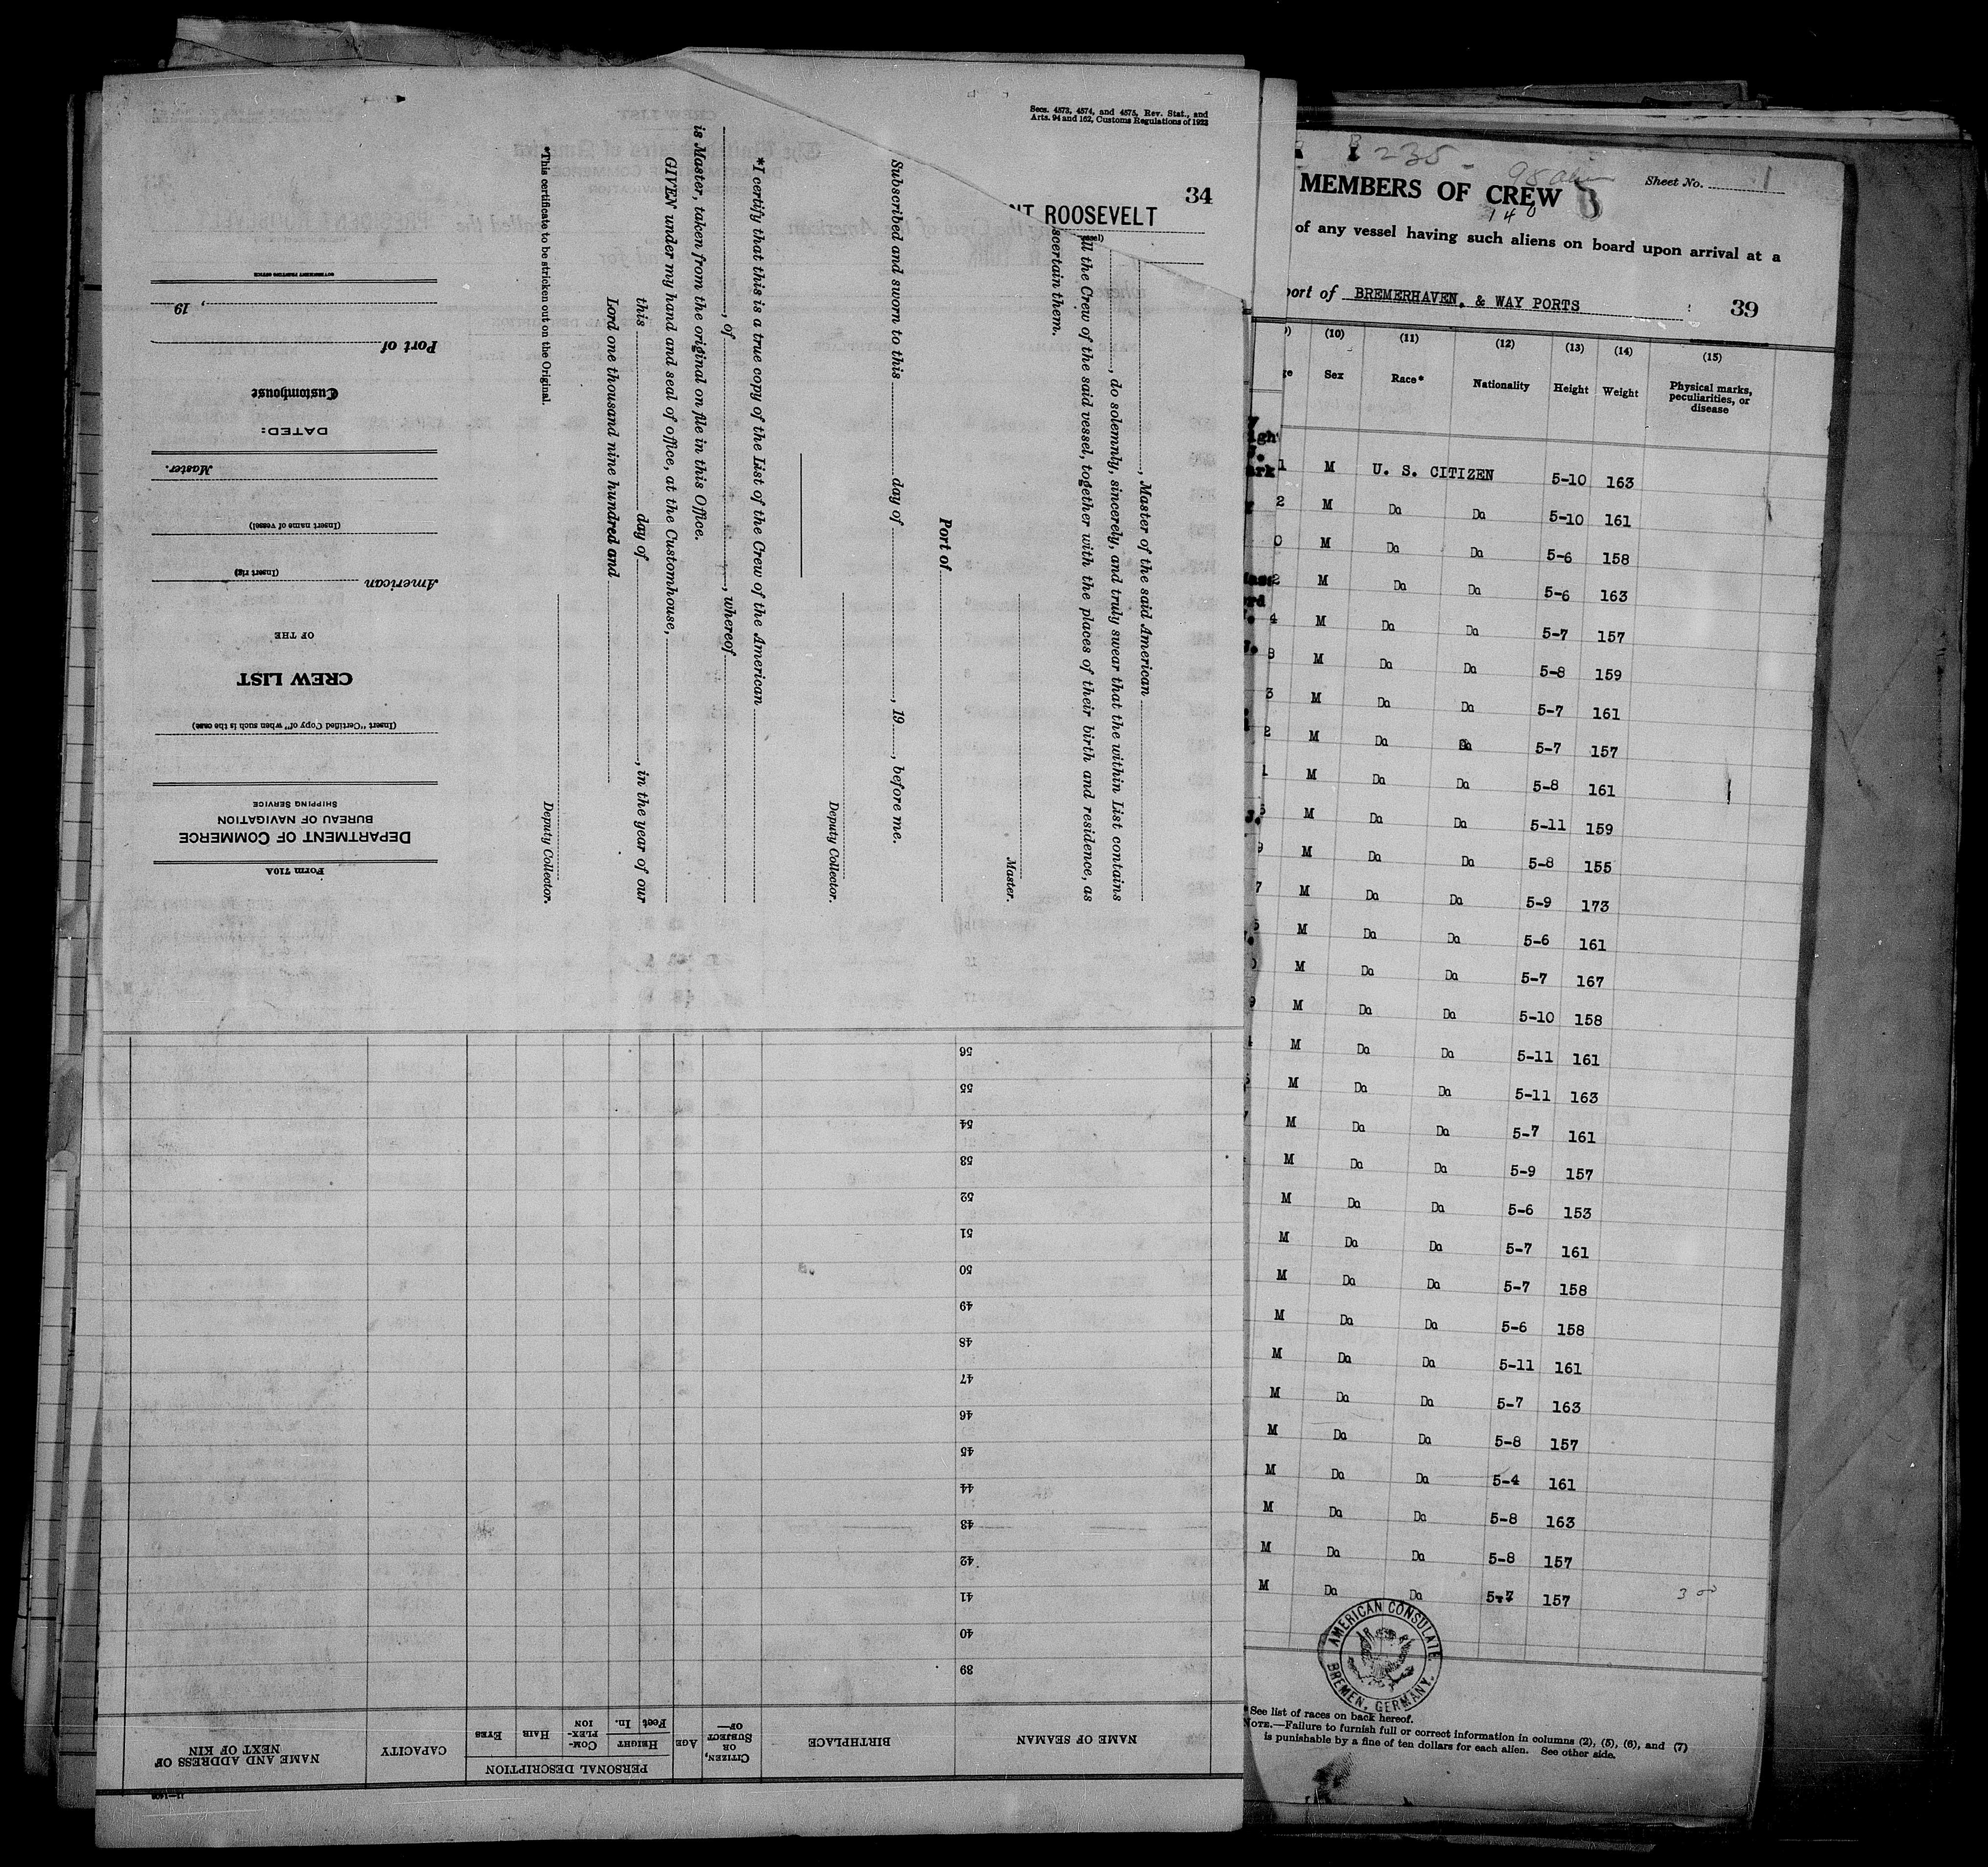 Secs. 4573, 4574, and 4575, Rev. Stat., and
Arts. 94 and 162, Customs Regulations of 1923
34
NT ROOSEVELT
ssel)
, Master of the said American
, do solemnly, sincerely, and truly swear that the within List contains
all the Crew of the said vessel, together with the places of their birth and residence, as
scertain them.
Master.
Port of
Subscribed and sworn to this day of , 19 , before me.
Deputy Collector.
*I certify that this is a true copy of the List of the Crew of the American
, of , whereof
is Master, taken from the original on file in this Office.
GIVEN under my hand and seal of office, at the Customhouse,
this day of , in the year of our
Lord one thousand nine hundred and
Deputy Collector.
*This certificate to be stricken out on the Original.
Form 710A
DEPARTMENT OF COMMERCE
BUREAU OF NAVIGATION
SHIPPING SERVICE
(Insert "Certified Copy of" when such is the case)
CREW LIST
OF THE
American
(Insert rig)
(Insert name of vessel)
Master.
DATED:
Customhouse
Port of
, 19
GOVERNMENT PRINTING OFFICE
NAME OF SEAMAN
BIRTHPLACE
CITIZEN, OR SUBJECT OF—
AGE
PERSONAL DESCRIPTION
HEIGHT
Feet In.
COM-PLEX-ION
HAIR
EYES
CAPACITY
NAME AND ADDRESS OF NEXT OF KIN
39
40
41
42
43
44
45
46
47
48
49
50
51
52
53
54
55
56
235 - 98 alien
Sheet No. 1
MEMBERS OF CREW
140
of any vessel having such aliens on board upon arrival at a
port of BREMERHAVEN, & WAY PORTS
39
(10) (11) (12) (13) (14) (15)
Sex Race* Nationality Height Weight Physical marks, peculiarities, or disease
1 M U. S. CITIZEN 5-10 163
2 M Do Do 5-10 161
0 M Do Do 5-6 158
2 M Do Do 5-6 163
4 M Do Do 5-7 157
8 M Do Do 5-8 159
3 M Do Do 5-7 161
2 M Do Do 5-7 157
1 M Do Do 5-8 161
5 M Do Do 5-11 159
9 M Do Do 5-8 155
7 M Do Do 5-9 173
5 M Do Do 5-6 161
0 M Do Do 5-7 167
9 M Do Do 5-10 158
M Do Do 5-11 161
M Do Do 5-11 163
M Do Do 5-7 161
M Do Do 5-9 157
M Do Do 5-6 153
M Do Do 5-7 161
M Do Do 5-7 158
M Do Do 5-6 158
M Do Do 5-11 161
M Do Do 5-7 163
M Do Do 5-8 157
M Do Do 5-4 161
M Do Do 5-8 163
M Do Do 5-8 157
M Do Do 5-7 157
AMERICAN CONSULATE.
BREMEN, GERMANY.
*See list of races on back hereof.
NOTE.—Failure to furnish full or correct information in columns (2), (5), (6), and (7)
is punishable by a fine of ten dollars for each alien. See other side.